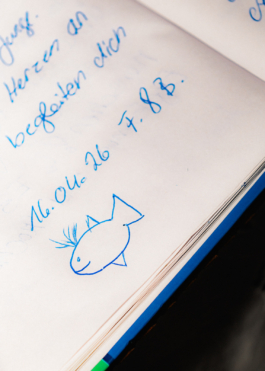 Jung.
Herzen an
begleiten dich
16.04.26 F. & B.